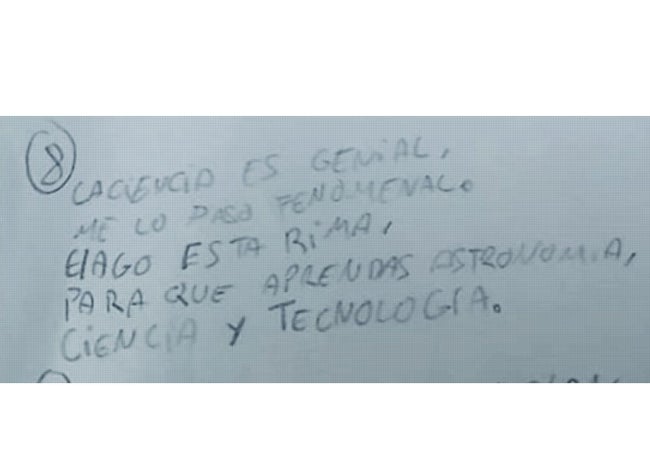 8
LA CIENCIA ES GENIAL,
ME LO PASO FENOMENAL.
HAGO ESTA RIMA,
PARA QUE APRENDAS ASTRONOMIA,
CIENCIA Y TECNOLOGIA.